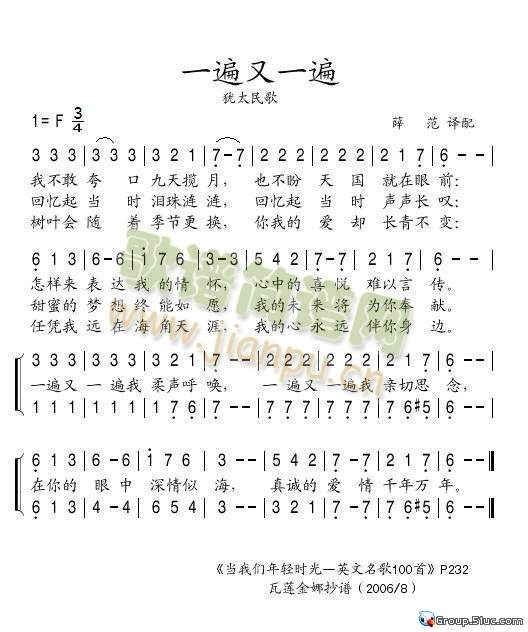 一遍又一遍
犹太民歌
1=F 3/4
薛 范 译配
3 3 3 | 3 3 3 | 3 2 1 | 7-7 | 2 2 2 | 2 2 2 | 2 1 7 | 6 - - |
我不敢夸口九天揽月， 也不盼天国就在眼前：
回忆起当时泪珠涟涟， 回忆起当时声声长叹：
树叶会随着季节更换， 你我的爱却长青不变：
6 1 3 | 6-6 | 1 7 6 | 3 - - | 5 4 2 | 7-7 | 2 1 7 | 6 - - |
怎样来表达我的情怀， 心中的喜悦难以言传。
甜蜜的梦想终能如愿， 我的未来将为你奉献。
任凭我远在海角天涯， 我的心永远伴你身边。
3 3 3 | 3 3 3 | 3 2 1 | 7 - - | 2 2 2 | 2 2 2 | 2 1 7 | 6 - - |
一遍又一遍我柔声呼唤， 一遍又一遍我亲切思念，
1 1 1 | 1 1 1 | 1 7 6 | 7 - - | 7 7 7 | 7 7 7 | 7 6 #5 | 6 - - |
6 1 3 | 6-6 | 1 7 6 | 3 - - | 5 4 2 | 7-7 | 2 1 7 | 6 - - ‖
在你的眼中深情似海， 真诚的爱情千年万年。
6 6 6 | 4-4 | 4 4 4 | 6 - - | 2 4 4 | 2-2 | 7 6 #5 | 6 - - ‖
《当我们年轻时光—英文名歌100首》P232
瓦莲金娜抄谱（2006/8）
歌谱简谱网
www.jianpu.cn
Group.5luc.com